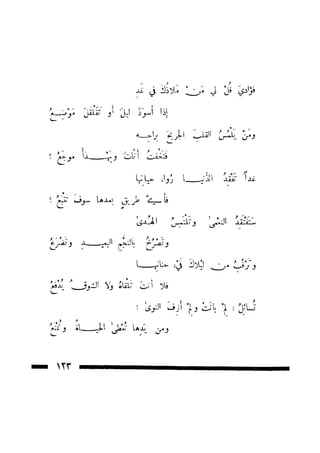 فؤاديَ قُلْ لي مَنْ مَلاذُكَ في غَدٍ
إذا أسودّ ليلٌ أو تَقَلْقَلَ مَوْضِعُ
ومَنْ يَلْمُسُ القلبَ الجريحَ براحِهِ
فَتَخْفُتُ أنّاتٌ ويَهْدأُ موجَعُ ؟
غداً تَفْقِدُ الدُّنيا رُواءَ حياتِها
فأيَّ طريقٍ بعدها سوفَ تَتْبَعُ ؟
سَتَفْتَقِدُ النعمىٰ وتَلْتَمِسُ الهُدىٰ
وتَصْرُخُ بالنَّجْمِ البعيدِ وتَضْرَعُ
وتَرْقُبُ من لَيْلاكَ فَيْءَ حنانِها
فلا أنتَ تَلْقاهُ ولا الشوقُ يُدْفَعُ
تُسائِلُ : لِمْ بانَتْ ولِمْ أزِفَ النوىٰ ؟
ومن يَدِها تُعْطىٰ الحياةُ وتُمْنَعُ
١٢٣